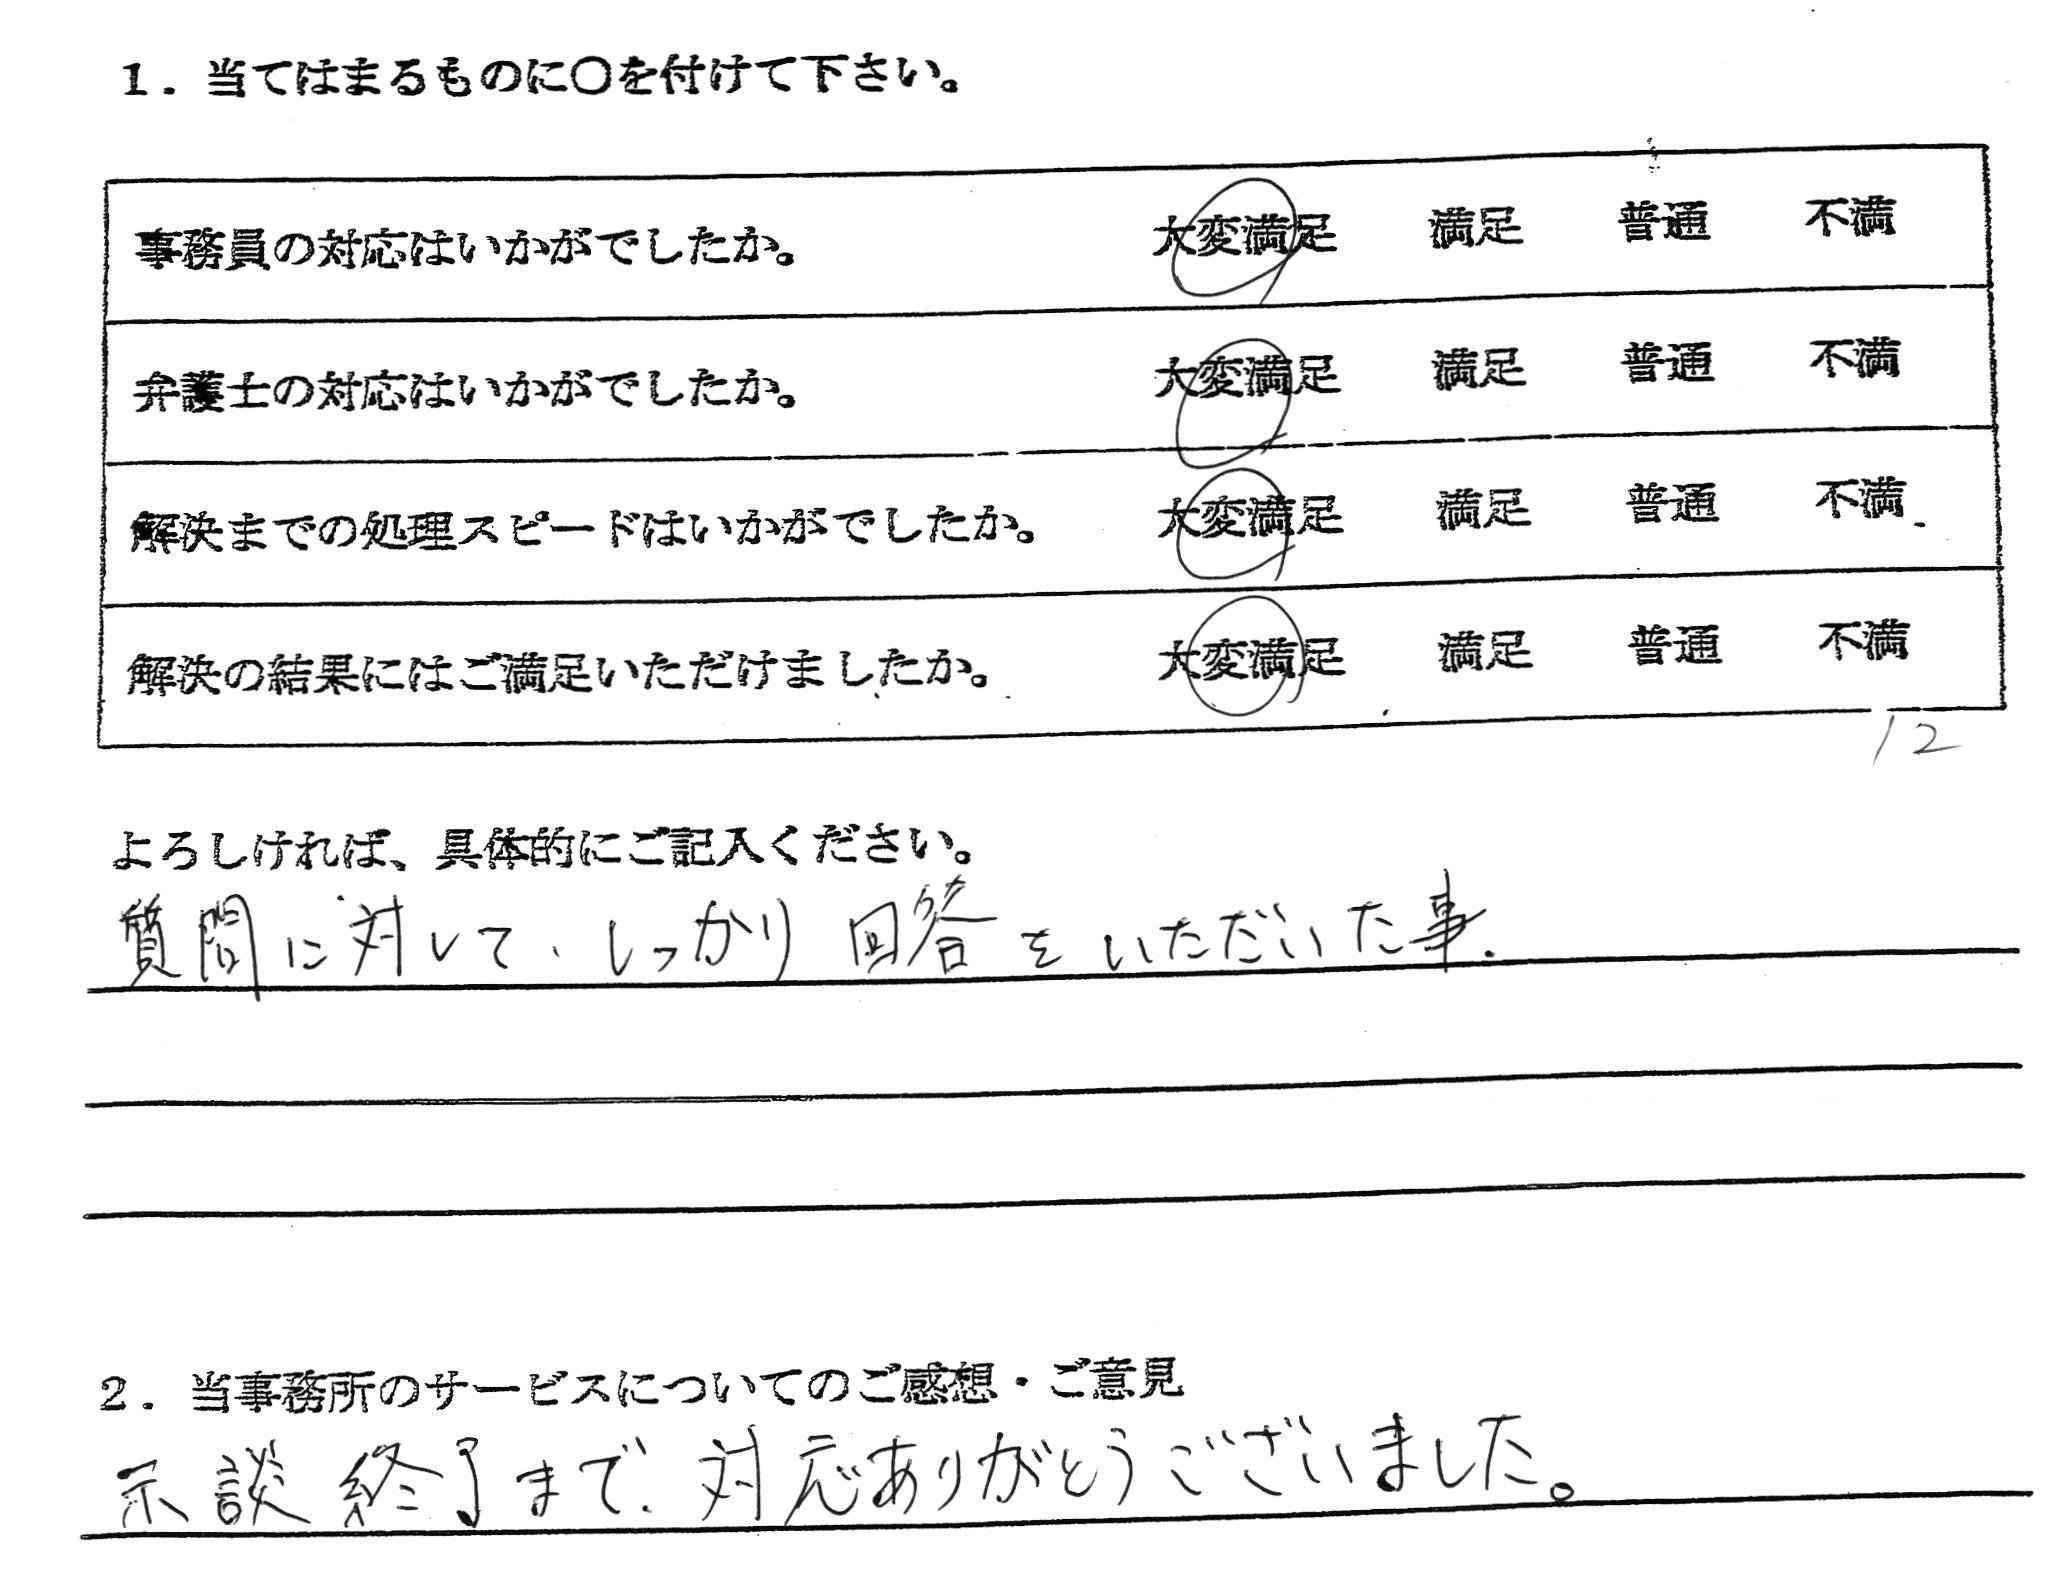 1．当てはまるものに〇を付けて下さい。
事務員の対応はいかがでしたか。 大変満足 満足 普通 不満
弁護士の対応はいかがでしたか。 大変満足 満足 普通 不満
解決までの処理スピードはいかがでしたか。 大変満足 満足 普通 不満
解決の結果にはご満足いただけましたか。 大変満足 満足 普通 不満
12
よろしければ、具体的にご記入ください。
質問に対して、しっかり回答をいただいた事.
2．当事務所のサービスについてのご感想・ご意見
示談終了まで、対応ありがとうございました。